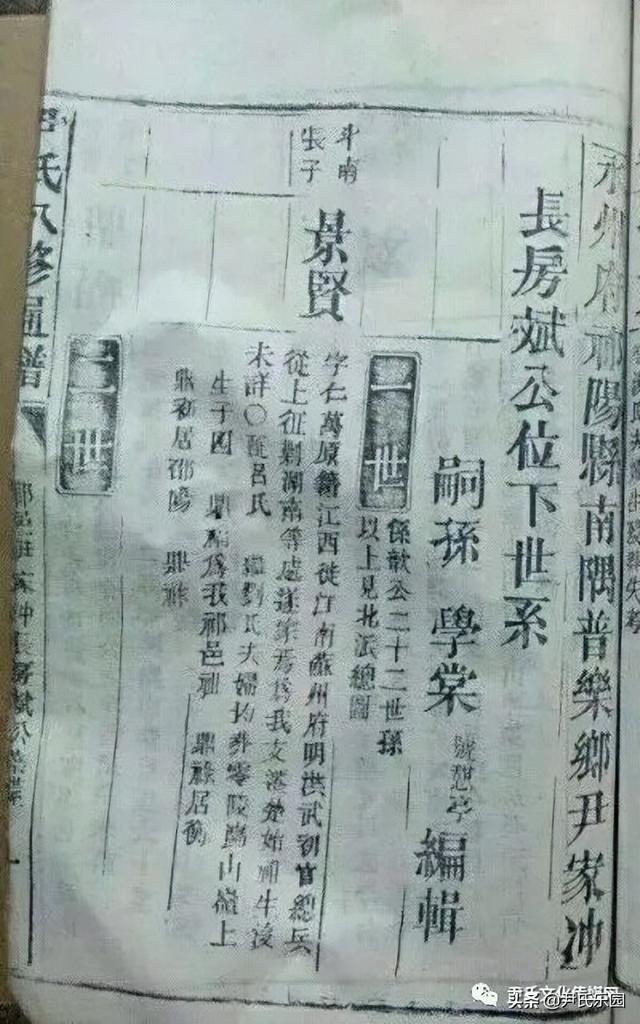 永州府祁陽縣南隅普樂鄉尹家冲
長房斌公位下世系
嗣孫 學棠 號憇亭 編輯
一世
係歆公二十二世孫
以上見北派總圖
斗南
長子
景賢
字仁萬原籍江西徙江南蘇州府明洪武初官總兵
從上征剿湖南等處遂家焉為我支派楚始祖生沒
未詳〇配呂氏 繼劉氏夫婦均葬零陵 山嶺上
生子四 鼎 為我祁邑祖 鼎祿居衡
鼎 居邵陽 鼎
二世
氏八修通譜
尹氏文化传媒网
头条@尹氏乐园